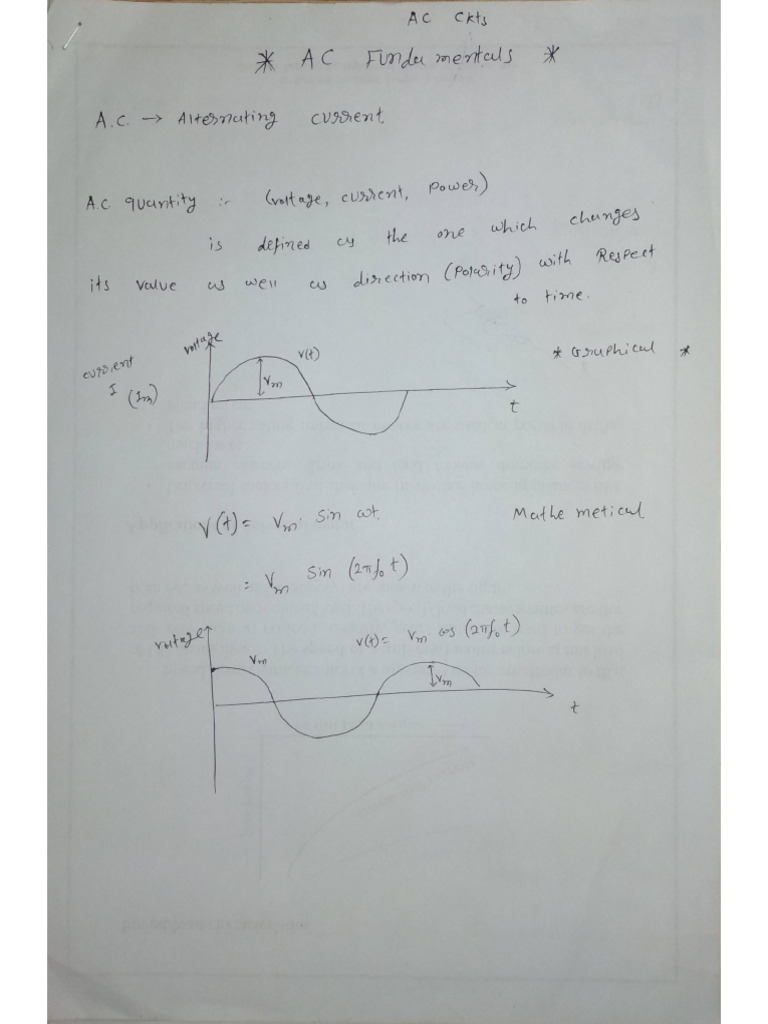 AC Ckts
* AC Fundamentals *
A.C. → Alternating current
A.C quantity :- (voltage, current, power)
is defined as the one which changes
its value as well as direction (Polarity) with Respect
to time.
* Graphical *
voltage
v(t)
current
I (Im)
Vm
t
V(t) = Vm. Sin ωt.
Mathemetical
= Vm Sin (2πf₀t)
voltage
v(t) = Vm cos (2πf₀t)
Vm
Vm
t